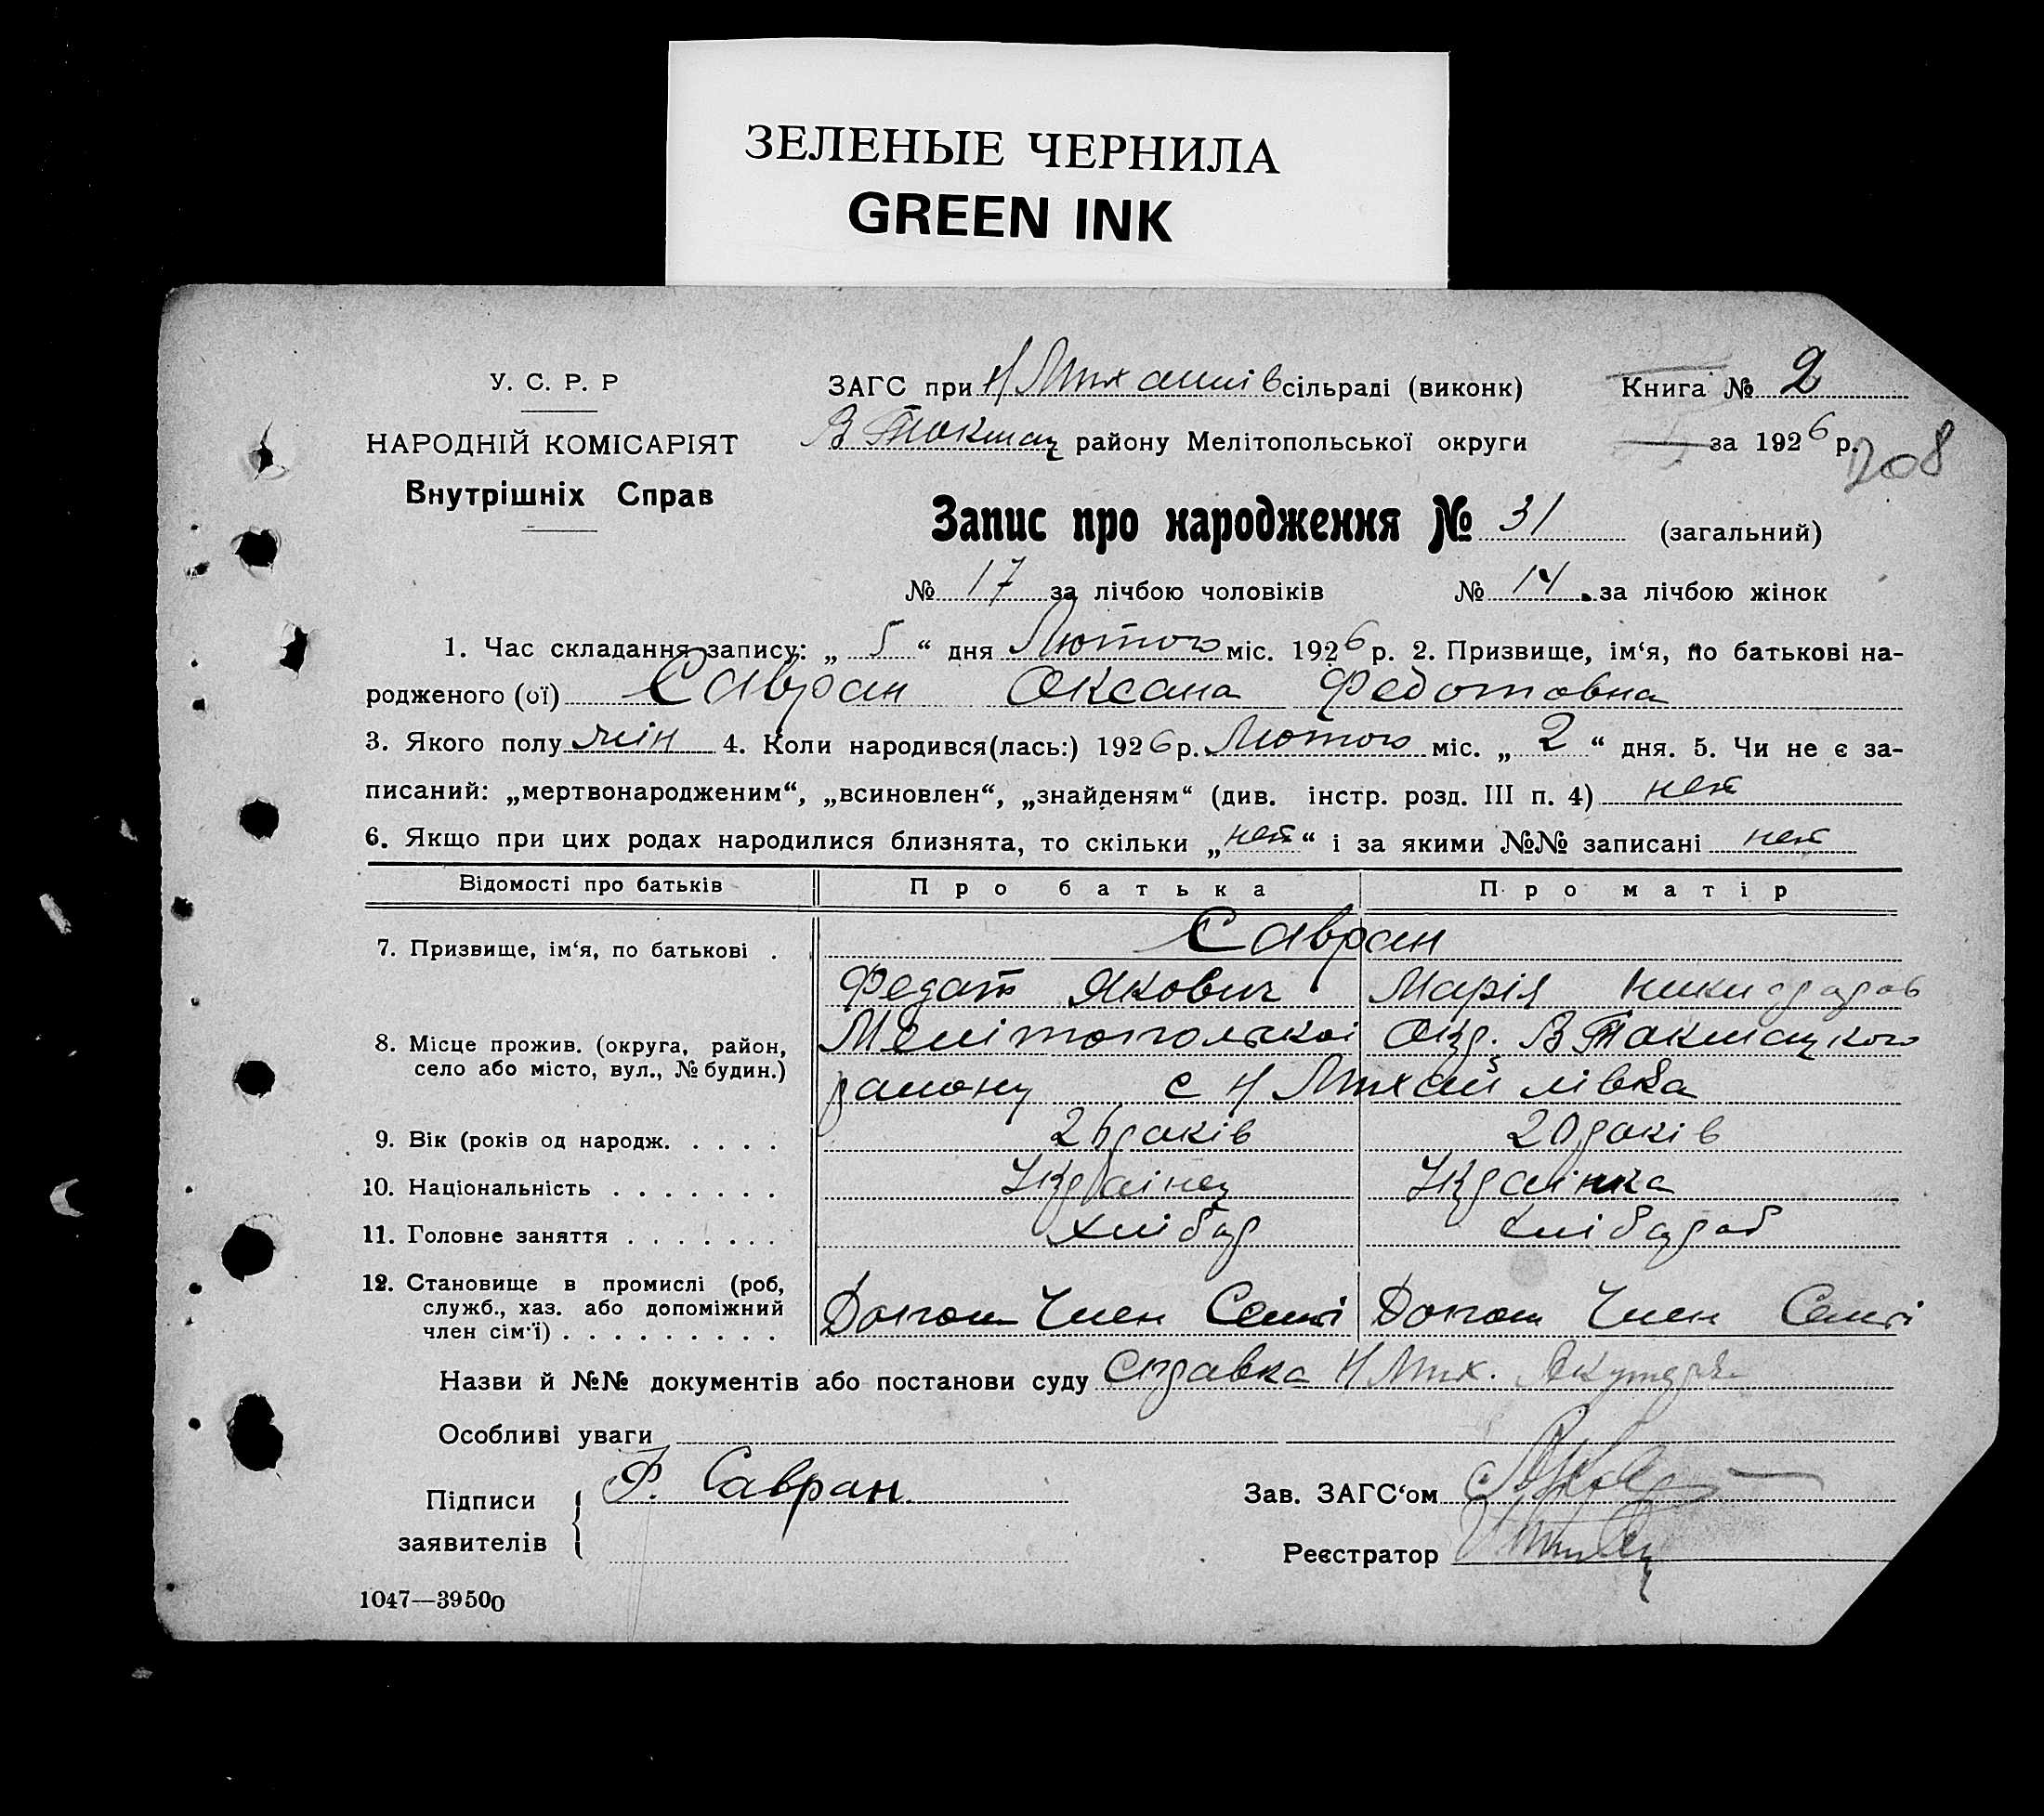 ЗЕЛЕНЫЕ ЧЕРНИЛА
GREEN INK
У. С. Р. Р
НАРОДНІЙ КОМІСАРІЯТ
Внутрішніх Справ
ЗАГС при Н Михайлів сільраді (виконк)
В Токмац району Мелітопольської округи
Книга № 2
за 1926 р.
208
Запис про народження № 31 (загальний)
№ 17 за лічбою чоловіків № 14 за лічбою жінок
1. Час складання запису: „ 5 “ дня Лютого міс. 1926 р. 2. Призвище, ім‘я, по батькові на-
родженого (ої) Савран Оксана Федотовна
3. Якого полу жін 4. Коли народився(лась:) 1926 р. Лютого міс. „ 2 “ дня. 5. Чи не є за-
писаний: „мертвонародженим“, „всиновлен“, „знайденям“ (див. інстр. розд. III п. 4) нет
6. Якщо при цих родах народилися близнята, то скільки „нет“ і за якими №№ записані нет
Відомості про батьків Про батька Про матір
7. Призвище, ім‘я, по батькові . Савран
Федот Якович Марія
8. Місце прожив. (округа, район, село або місто, вул., № будин.) Мелітопольскоі Окр. В Токмацкого
району с Н Михайлівка
9. Вік (років од народж. . . . . 26 років 20 років
10. Національність . . . . . . . Українец Українка
11. Головне заняття . . . . . . . хлібор хлібороб
12. Становище в промислі (роб, служб., хаз. або допоміжний член сім‘ї) . . . . . . . . . Допом Член Семї Допом Член Семї
Назви й №№ документів або постанови суду Справка Н Мих.
Особливі уваги
Підписи заявителів Ф. Савран.
Зав. ЗАГС‘ом
Реєстратор
1047—39500